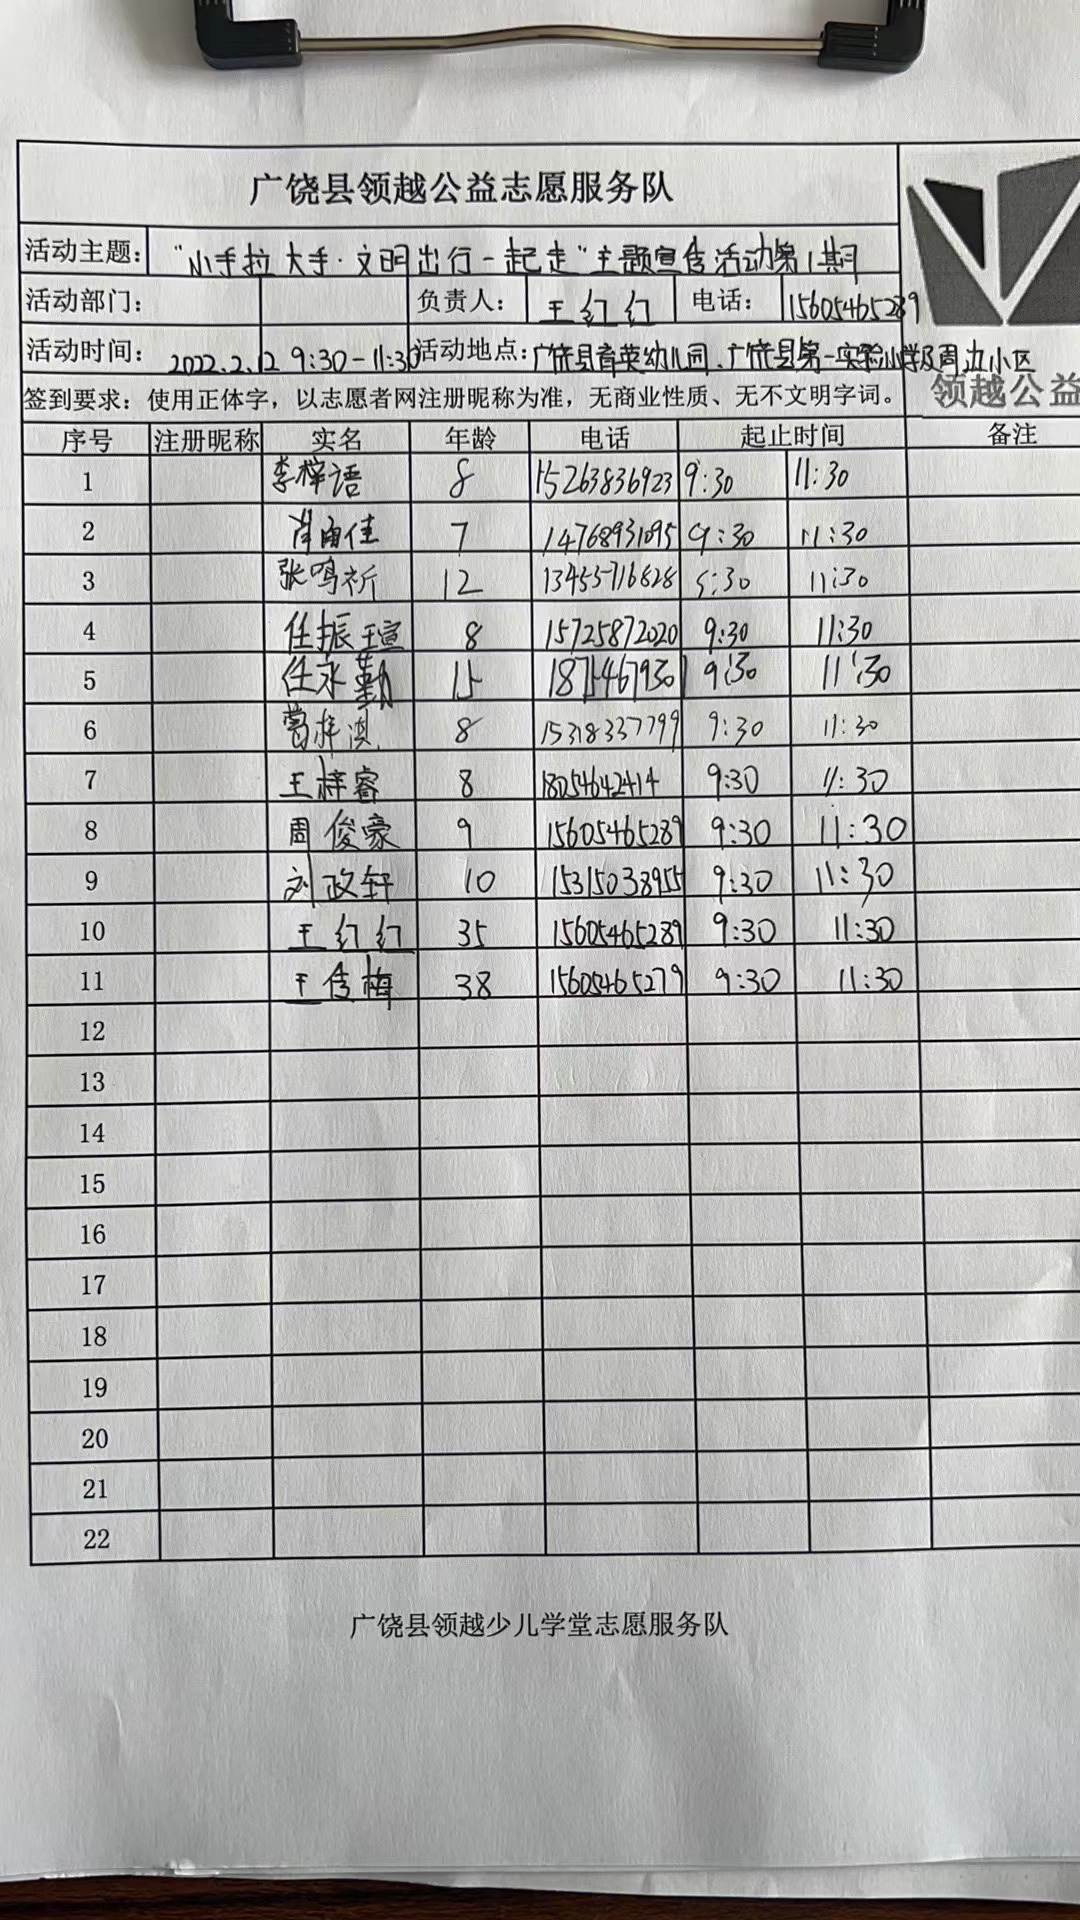 广饶县领越公益志愿服务队
活动主题： “小手拉大手·文明出行一起走”主题宣传活动第1期
活动部门： 负责人： 王红红 电话： 15605465289
活动时间： 2022.2.12 9:30-11:30 活动地点：广饶县育英幼儿园、广饶县第一实验小学及周边小区
领越公益
签到要求：使用正体字，以志愿者网注册昵称为准，无商业性质、无不文明字词。
序号 注册昵称 实名 年龄 电话 起止时间 备注
1 李梓语 8 15263836923 9:30 11:30
2 佳 7 14768931095 9:30 11:30
3 张鸣祈 12 13455716828 9:30 11:30
4 任振瑄 8 15725872020 9:30 11:30
5 任永勤 15 18715467930 9:30 11:30
6 梓淇 8 15318337799 9:30 11:30
7 王梓睿 8 18054642414 9:30 11:30
8 周俊豪 9 15605465289 9:30 11:30
9 刘政轩 10 15315038955 9:30 11:30
10 王红红 35 15605465289 9:30 11:30
11 王俊梅 38 15605465279 9:30 11:30
12
13
14
15
16
17
18
19
20
21
22
广饶县领越少儿学堂志愿服务队